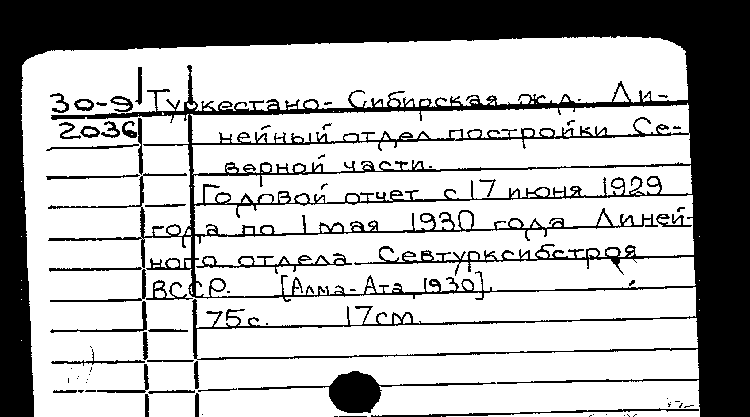 30-9 Туркестано-Сибирская ж.д. Ли-
2036 нейный отдел постройки Се-
верной части.
Годовой отчет с 17 июня 1929
года по 1 мая 1930 года Линей-
ного отдела Севтурксибстроя
ВССР. [Алма-Ата, 1930].
75с. 17см.